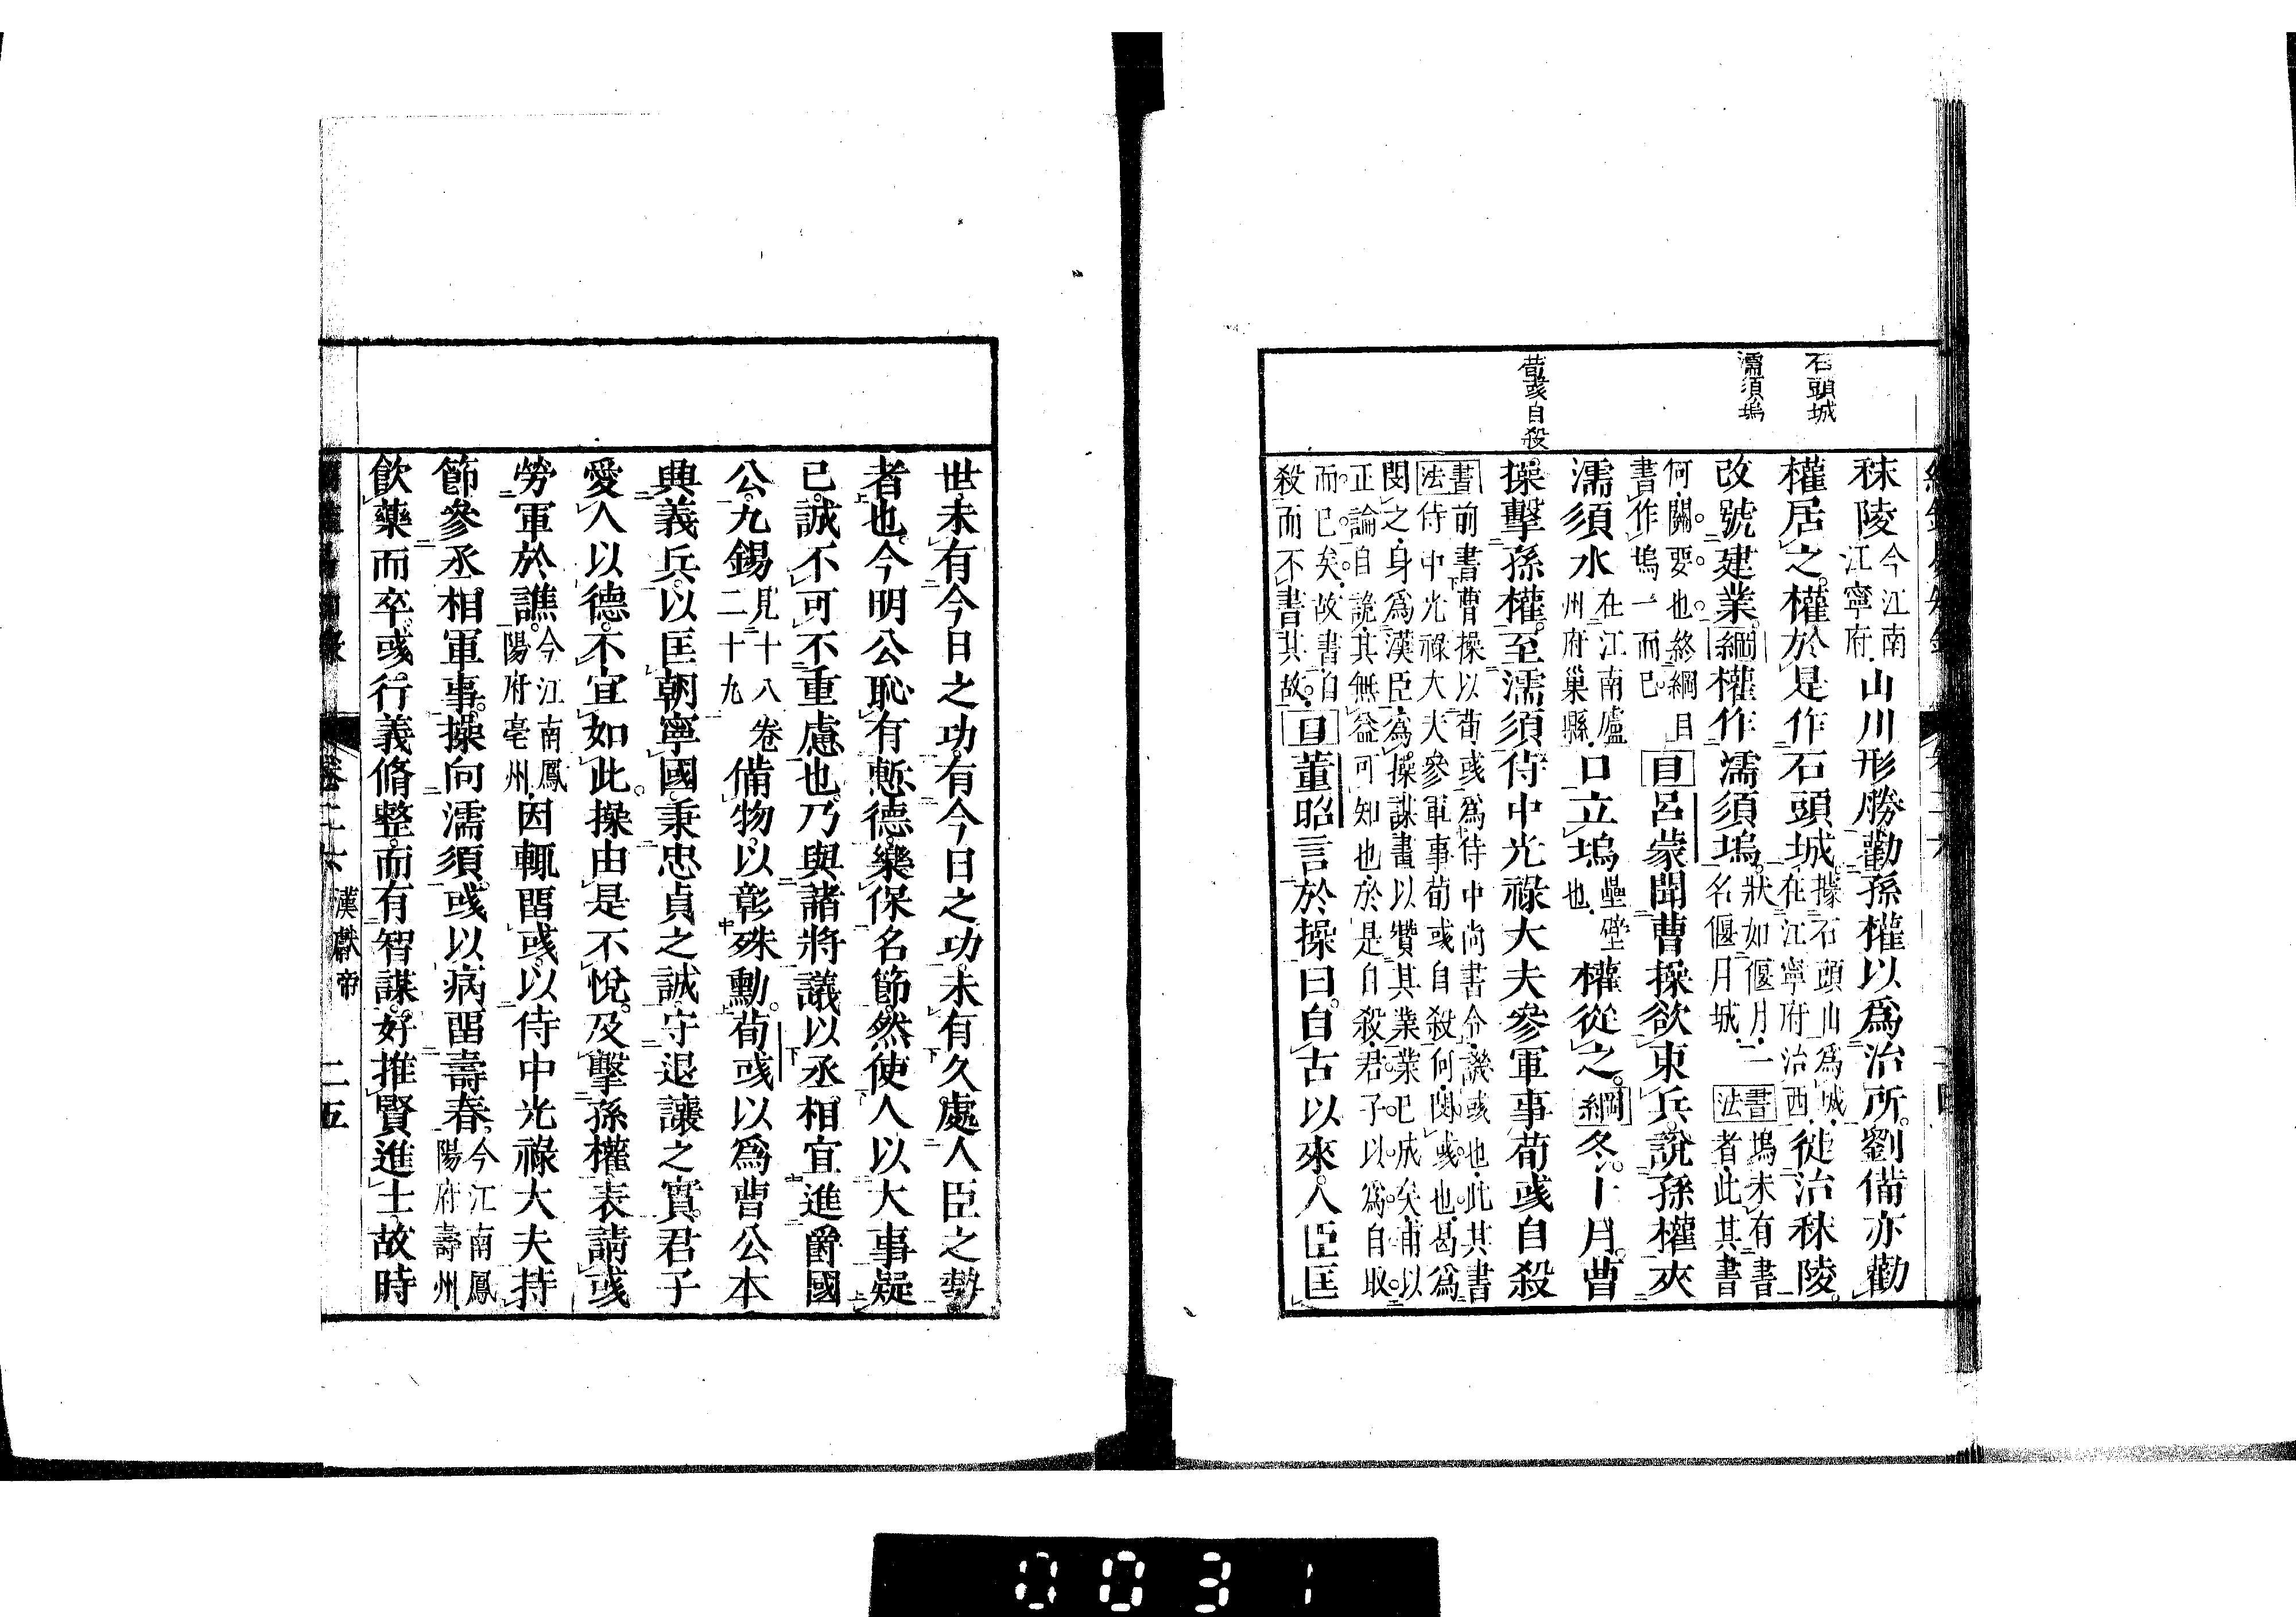 石頭城
濡須塢
荀彧自殺
秣陵今江南江寧府山川形勝勸孫權以爲治所劉備亦勸
權居之權於是作石頭城據石頭山爲城在江寧府治西徙治秣陵
改號建業綱權作濡須塢狀如偃月一名偃月城書法塢未有書者此其書
何關要也終綱目書作塢一而已目呂蒙聞曹操欲東兵說孫權夾
濡須水在江南廬州府巢縣口立塢壘壁也權從之綱冬十月曹
操擊孫權至濡須侍中光祿大夫參軍事荀彧自殺
書法前書曹操以荀彧爲侍中尚書令譏彧也此其書侍中光祿大夫參軍事荀彧自殺何閔彧也曷爲
閔之身爲漢臣爲操謀畫以贊其業業已成矣甫以正論自詭其無益可知也於是自殺君子以爲自取
而已矣故書自殺而不書其故目董昭言於操曰自古以來人臣匡
世未有今日之功有今日之功未有久處人臣之勢
者也今明公恥有慙德樂保名節然使人以大事疑
已誠不可不重慮也乃與諸將議以丞相宜進爵國
公九錫見十八卷二十九備物以彰殊勳荀彧以爲曹公本
典義兵以匡朝寧國秉忠貞之誠守退讓之實君子
愛人以德不宜如此操由是不悅及擊孫權表請彧
勞軍於譙今江南鳳陽府亳州因輒畱彧以侍中光祿大夫持
節參丞相軍事操向濡須彧以病畱壽春今江南鳳陽府壽州
飮藥而卒彧行義脩整而有智謀好推賢進士故時
卷二十六 漢獻帝 二五